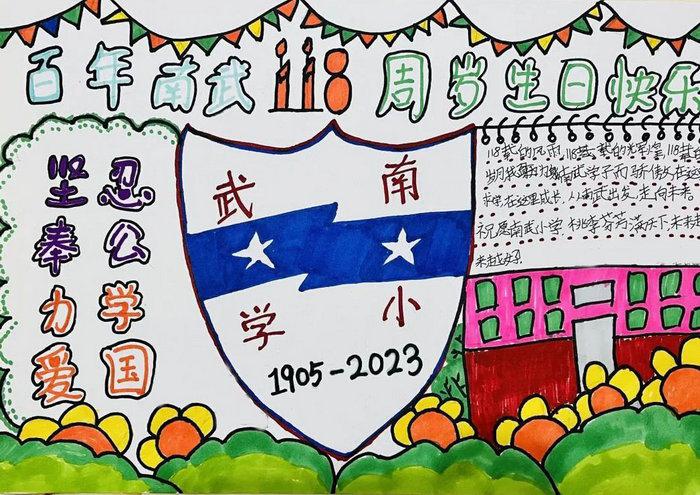 百年南武118周岁生日快乐
坚忍
奉公
力学
爱国
武 南
学 小
1905-2023
118载的风雨,118载
岁月 南武学子而骄傲,在这
在这里成长.从南武出发,走向未来
祝愿南武小学桃李芬芳,满天下,未来越
来越好!